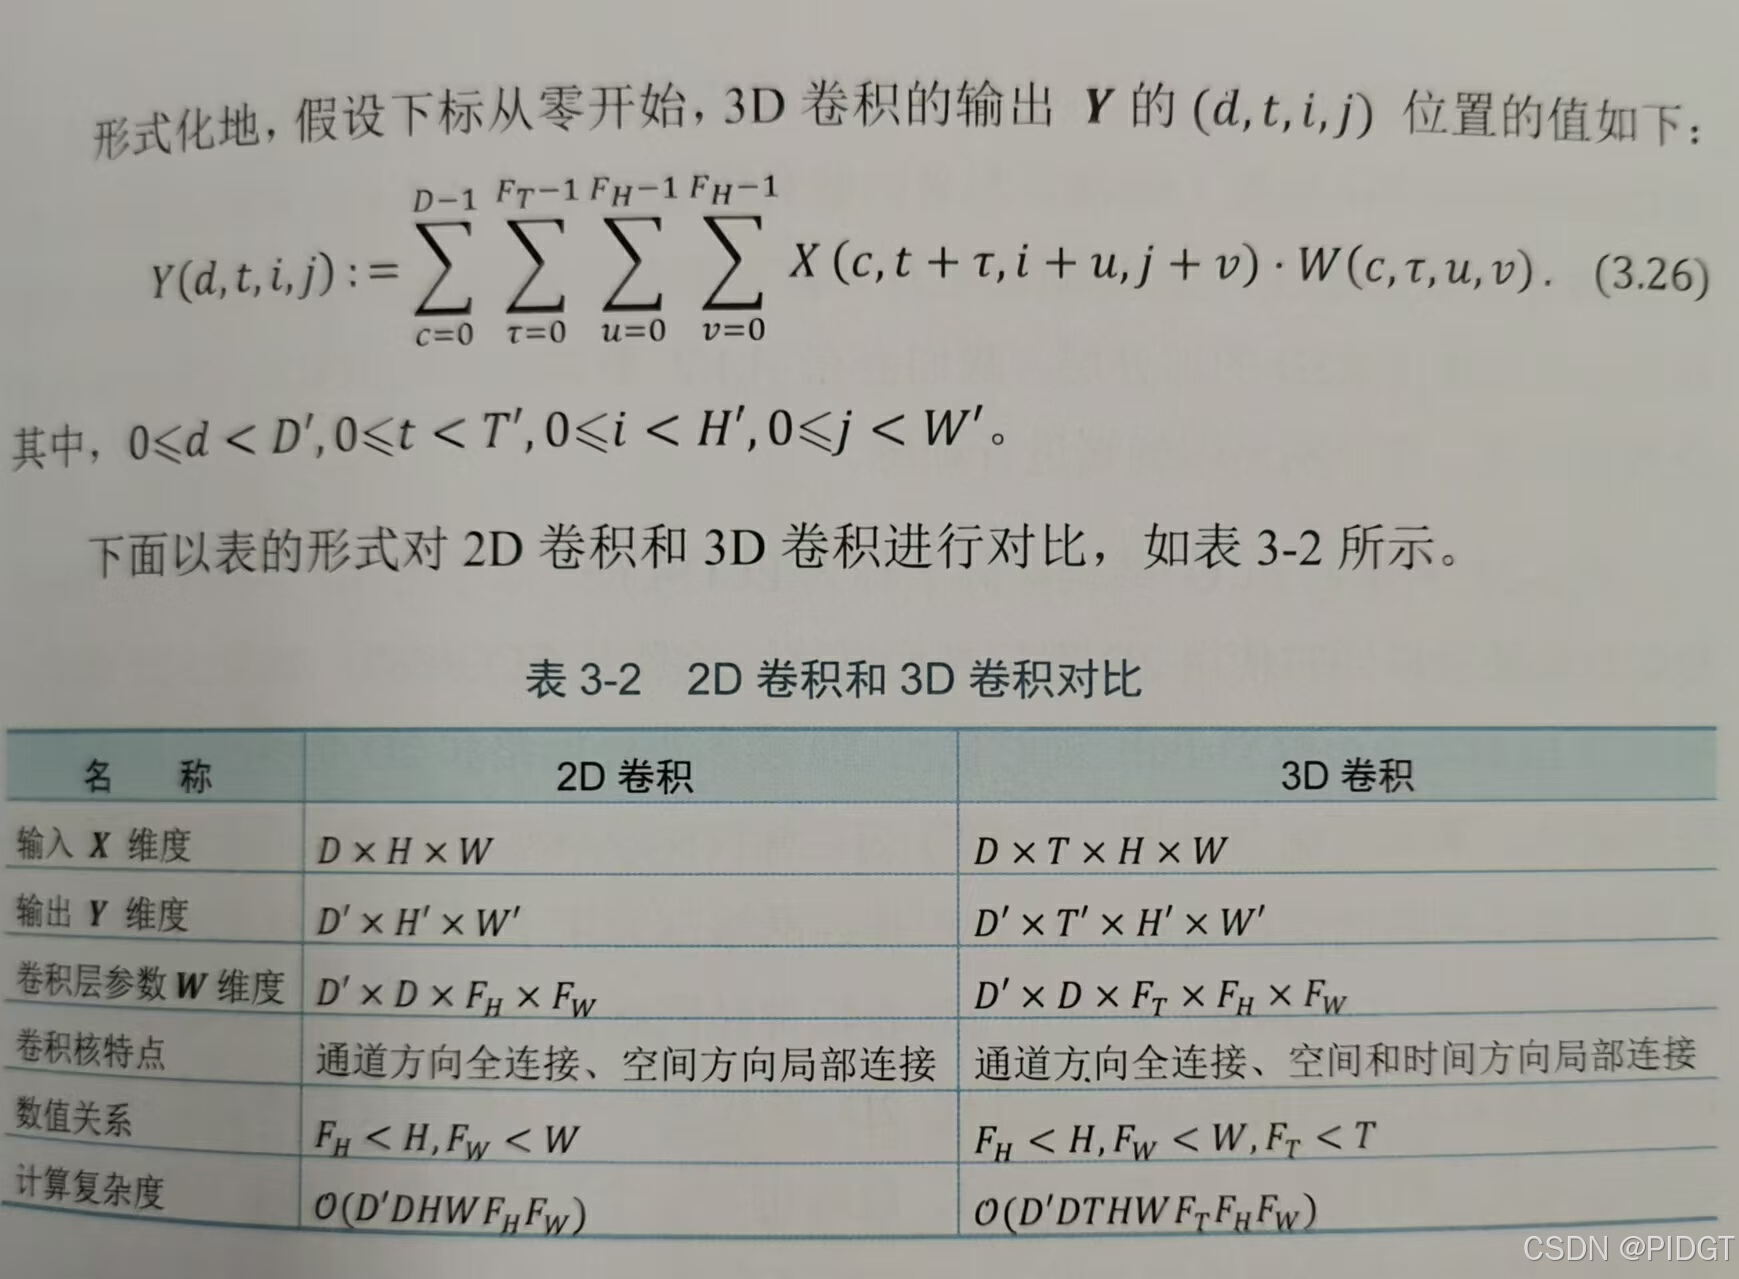 形式化地，假设下标从零开始，3D 卷积的输出 Y 的 (d,t,i,j) 位置的值如下：
D−1 F_T−1 F_H−1 F_H−1
Y(d,t,i,j) := ∑ ∑ ∑ ∑ X(c,t+τ,i+u,j+v)·W(c,τ,u,v). (3.26)
c=0 τ=0 u=0 v=0
其中，0⩽d < D′,0⩽t < T′,0⩽i < H′,0⩽j < W′。
下面以表的形式对 2D 卷积和 3D 卷积进行对比，如表 3-2 所示。
表 3-2 2D 卷积和 3D 卷积对比
名 称 2D 卷积 3D 卷积
输入 X 维度 D×H×W D×T×H×W
输出 Y 维度 D′×H′×W′ D′×T′×H′×W′
卷积层参数 W 维度 D′×D×F_H×F_W D′×D×F_T×F_H×F_W
卷积核特点 通道方向全连接、空间方向局部连接 通道方向全连接、空间和时间方向局部连接
数值关系 F_H < H,F_W < W F_H < H,F_W < W,F_T < T
计算复杂度 O(D′DHWF_HF_W) O(D′DTHWF_TF_HF_W)
CSDN @PIDGT